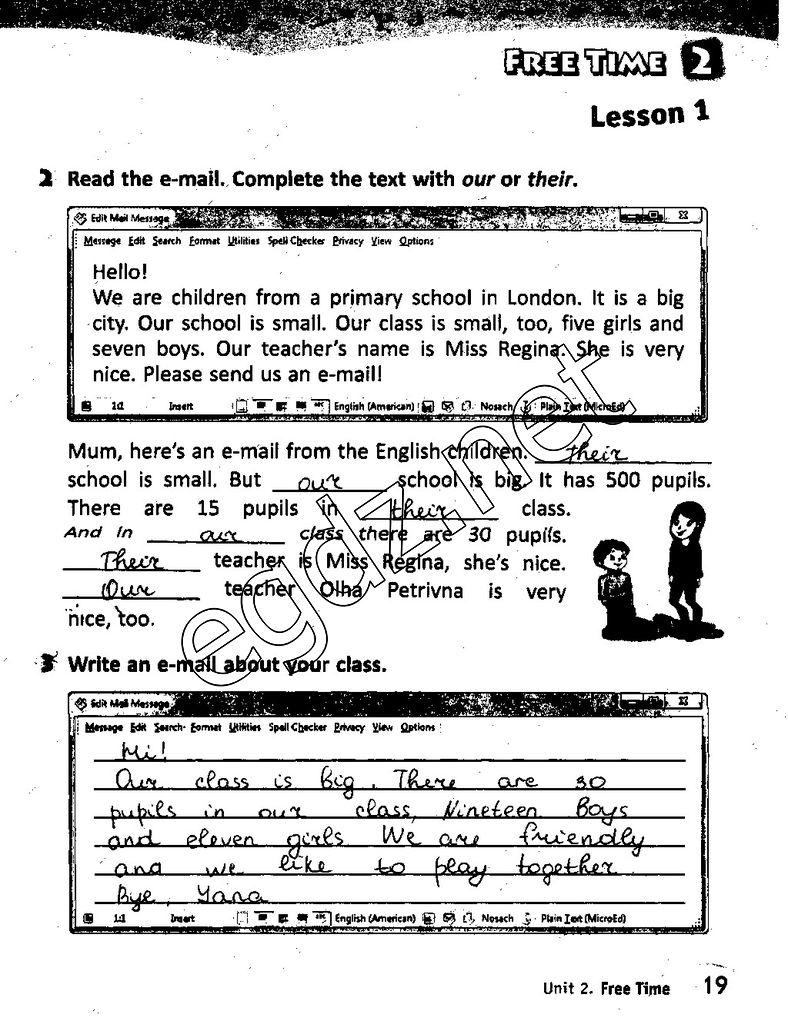 FREE TIME 2
Lesson 1
2 Read the e-mail. Complete the text with our or their.
Edit Mail Message
Message Edit Search Format Utilities Spell Checker Privacy View Options
Hello!
We are children from a primary school in London. It is a big
city. Our school is small. Our class is small, too, five girls and
seven boys. Our teacher's name is Miss Regina. She is very
nice. Please send us an e-mail!
1:1 Insert English (American) Nosach Plain Text (MicroEd)
Mum, here's an e-mail from the English children. their
school is small. But our school is big. It has 500 pupils.
There are 15 pupils in their class.
And in our class there are 30 pupils.
Their teacher is Miss Regina, she's nice.
Our teacher Olha Petrivna is very
nice, too.
egdz.net
3 Write an e-mail about your class.
Edit Mail Message
Message Edit Search Format Utilities Spell Checker Privacy View Options
Hi!
Our class is big. There are 30
pupils in our class, Nineteen Boys
and eleven girls We are friendly
and we like to play together
Bye, Yana
1:1 Insert English (American) Nosach Plain Text (MicroEd)
Unit 2. Free Time 19